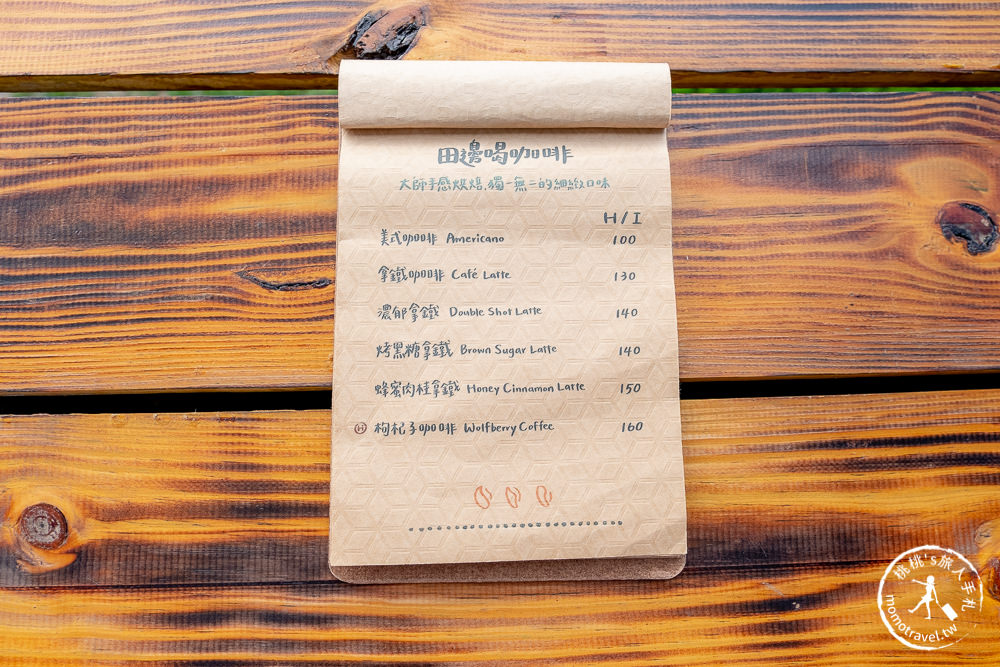 田邊喝咖啡
大師手感烘焙,獨一無二的細緻口味
H/I
美式咖啡 Americano 100
拿鐵咖啡 Café Latte 130
濃郁拿鐵 Double Shot Latte 140
烤黑糖拿鐵 Brown Sugar Latte 140
蜂蜜肉桂拿鐵 Honey Cinnamon Latte 150
H 枸杞子咖啡 Wolfberry Coffee 160
桃桃's旅人手札
momotravel.tw